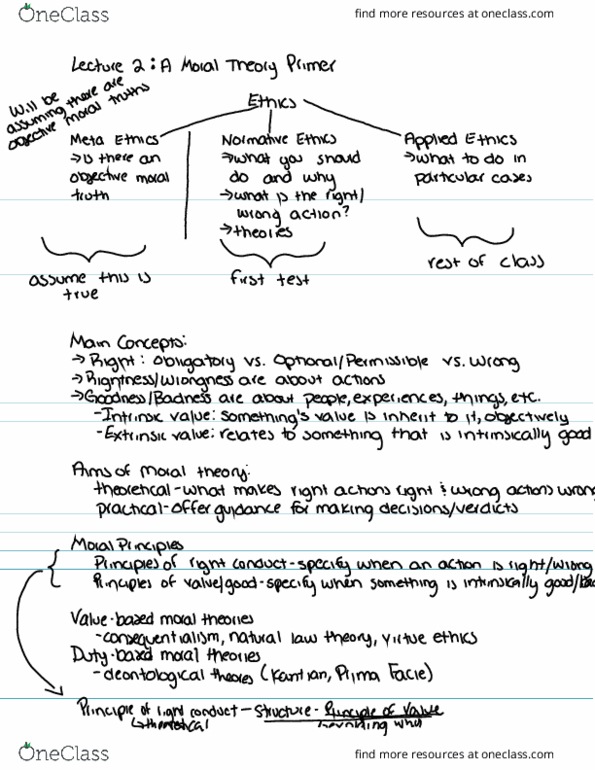 OneClass
find more resources at oneclass.com
Lecture 2: A Moral Theory Primer
Will be
assuming there are
objective moral truths
Ethics
Meta Ethics
→ is there an
objective moral
truth
Normative Ethics
→ what you should
do and why
→ what is the right/
wrong action?
→ theories
Applied Ethics
→ what to do in
particular cases
assume this is
true
first test
rest of class
Main Concepts:
→ Right: obligatory vs. Optional/Permissible vs. Wrong
→ Rightness/Wrongness are about actions
→ Goodness/Badness are about people, experiences, things, etc.
- Intrinsic value: something's value is inherit to it, objectively
- Extrinsic value: relates to something that is intrinsically good
Aims of moral theory:
theoretical - what makes right actions right & wrong actions wrong
practical - offer guidance for making decisions/verdicts
Moral Principles
Principles of right conduct - specify when an action is right/wrong
Principles of value/good - specify when something is intrinsically good/bad
Value-based moral theories
- consequentialism, natural law theory, virtue ethics
Duty-based moral theories
- deontological theories (Kantian, Prima Facie)
Principle of right conduct - Structure - Principle of Value
↳ theoretical
why
OneClass
find more resources at oneclass.com